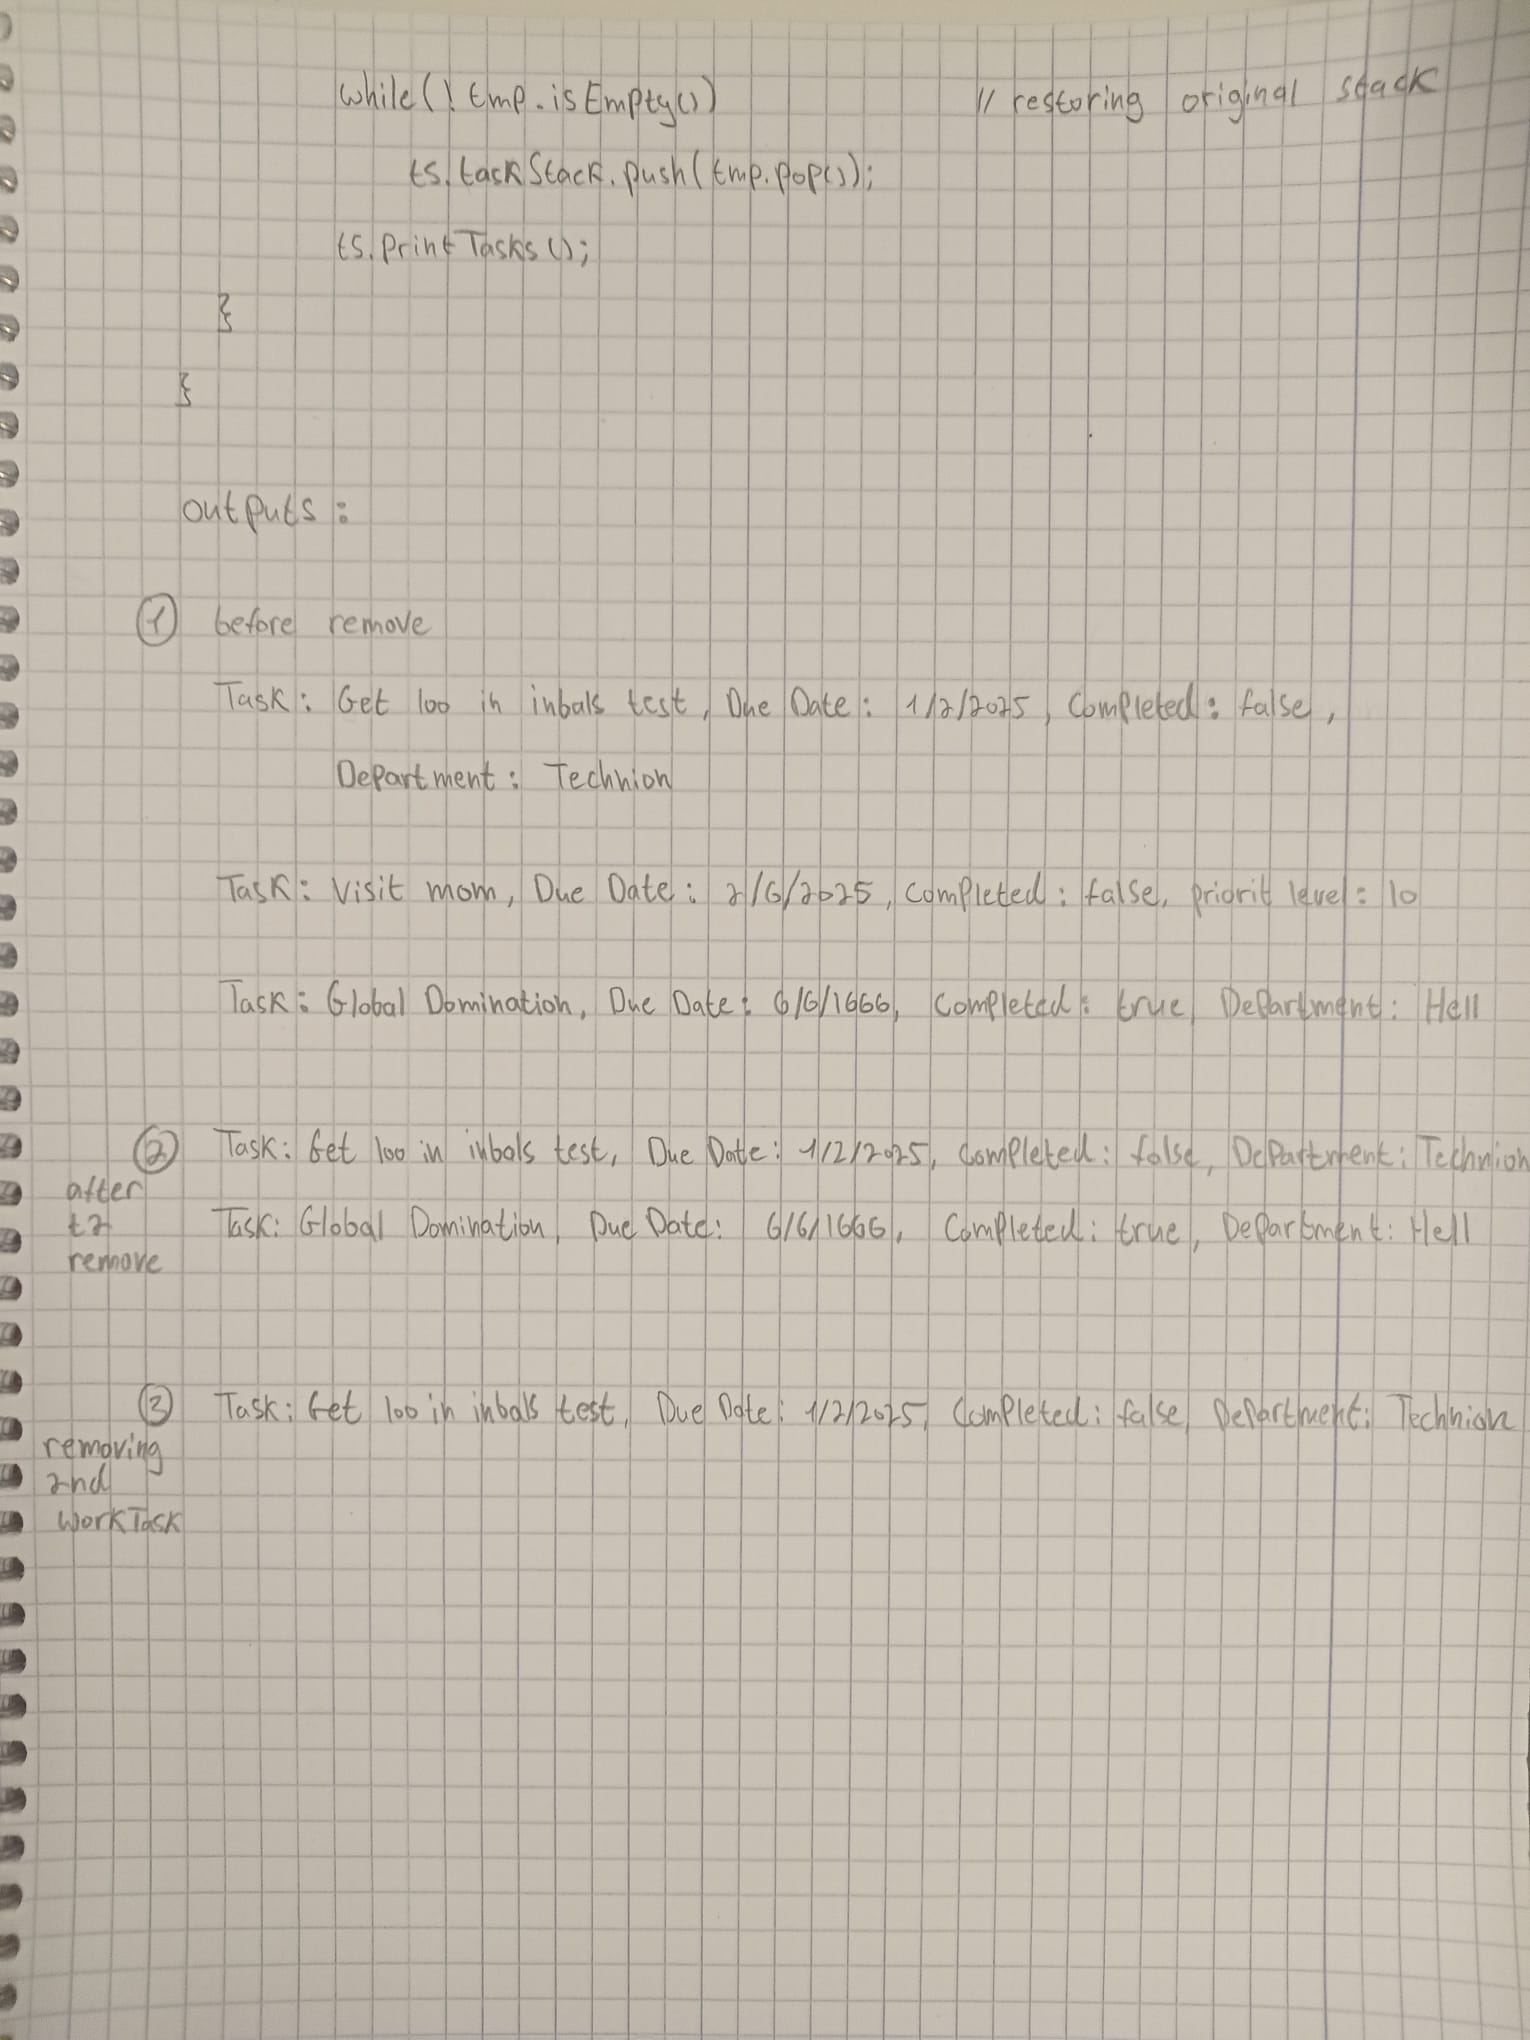 while(! tmp.isEmpty()) // restoring original stack
ts.taskStack.push(tmp.pop());
ts.printTasks();
}
}
outputs:
1 before remove
Task: Get 100 in inbals test, Due Date: 1/2/2025, Completed: false,
Department: Technion
Task: Visit mom, Due Date: 2/6/2025, Completed: false, priorit level: 10
Task: Global Domination, Due Date: 6/6/1666, Completed: true Department: Hell
2 Task: Get 100 in inbals test, Due Date: 1/2/2025, Completed: false, Department: Technion
after
t2 Task: Global Domination, Due Date: 6/6/1666, Completed: true, Department: Hell
remove
3 Task: Get 100 in inbals test, Due Date: 1/2/2025, Completed: false, Department: Technion
removing
2nd
WorkTask